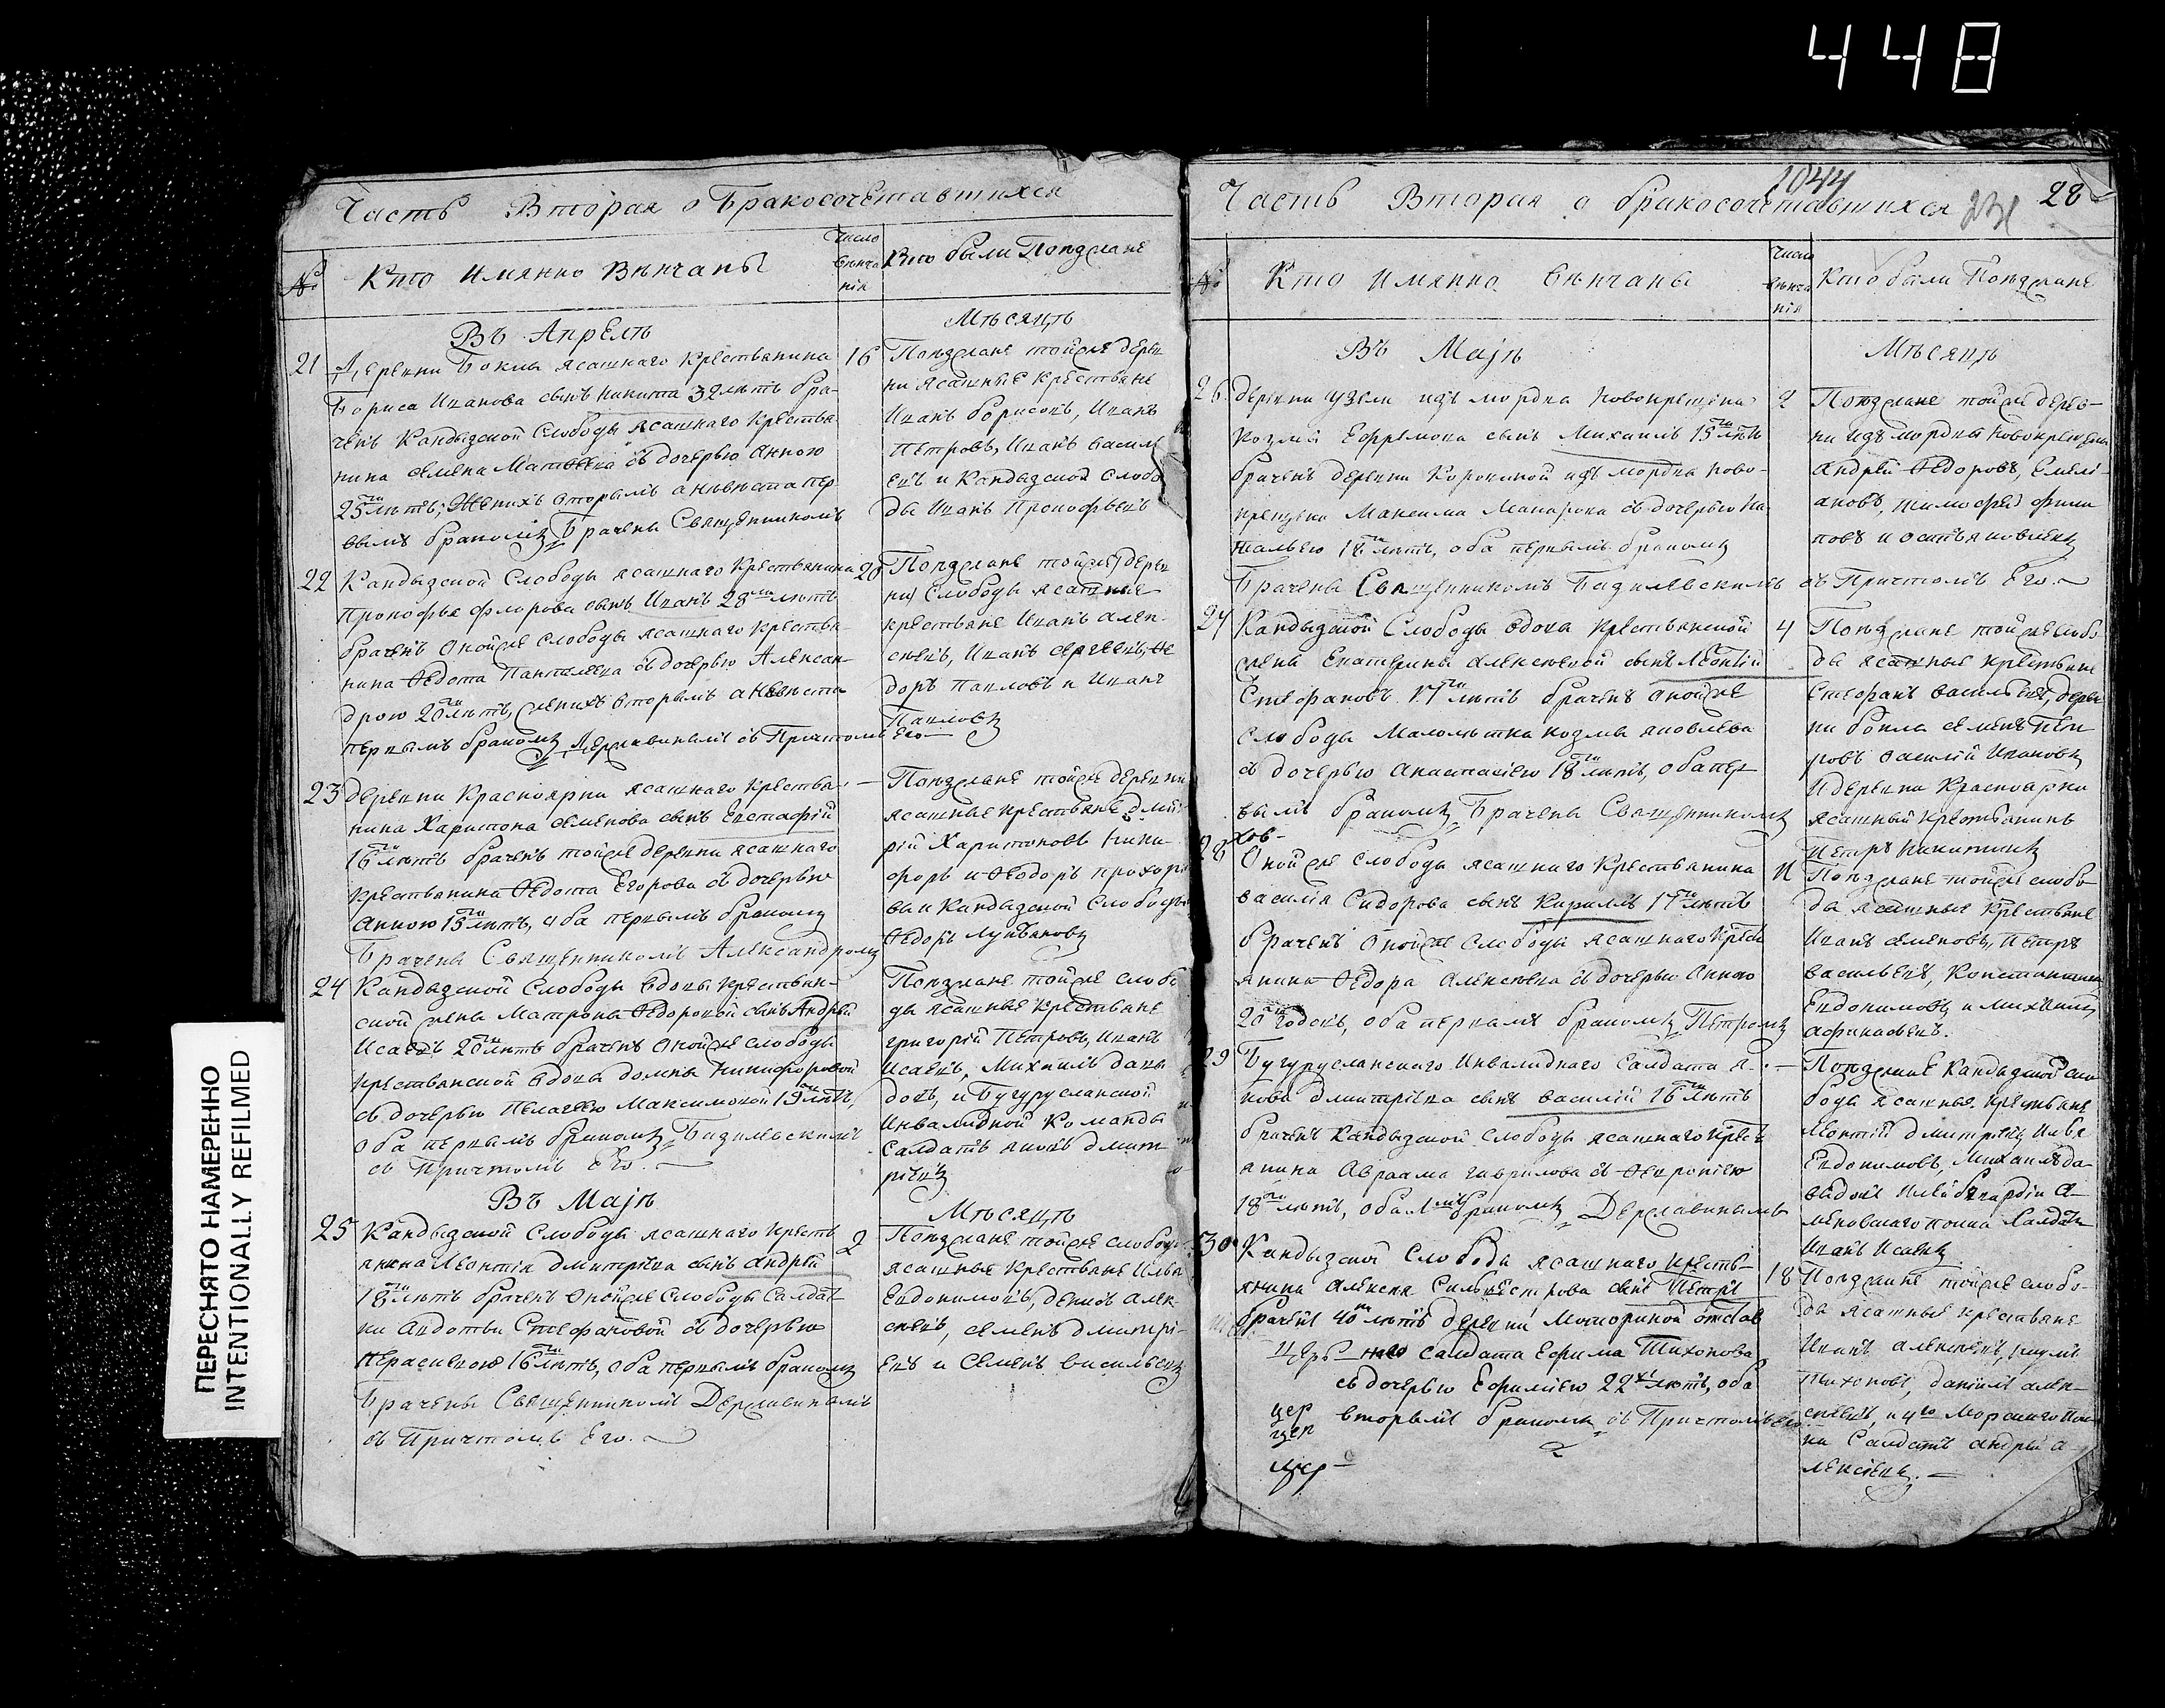 448
Часть Вторая о Бракосочетавшихся
№ Кто имянно Вѣнчаны
Число вѣнчанія
Кто были Поѣзжане
Въ Апрелѣ
Мѣсяцѣ
21 Деревни Боклы ясашнаго крестьянина
Бориса Иванова сынъ Никита 32 лѣтъ бра-
ченъ Кандызской Слободы ясашнаго крестья-
нина Семена Матвеева съ дочерью Анною
25ти лѣтъ; Женихъ вторымъ а невѣста пер-
вымъ бракомъ Брачены Священникомъ
16 Поѣзжане тойже дерев
ни ясашные крестьяне
Иванъ Борисовъ, Иванъ
Петровъ, Иванъ Василь
евъ и Кандызской слобо
ды Иванъ Прокофьевъ
22 Кандызской Слободы ясашнаго крестьянина
Прокофья Флорова сынъ Иванъ 28ми лѣтъ
браченъ оной же слободы ясашнаго крестья-
нина Федота Пантелеева съ дочерью Алексан-
дрою 20ти лѣтъ, женихъ вторымъ а невѣста
первымъ бракомъ Державинымъ съ Причтомъ Его
20 Поѣзжане тойже дерев
ни Слободы ясашные
крестьяне Иванъ Алек-
сеевъ, Иванъ Сергеевъ, Фе
доръ Павловъ и Иванъ
Павловъ
23 Деревни Красноярки ясашнаго крестья-
нина Харитона Семенова сынъ Евстафій
16ти лѣтъ браченъ тойже деревни ясашнаго
крестьянина Федота Егорова съ дочерью
Анною 15ти лѣтъ, оба первымъ бракомъ
Брачены Священникомъ Александромъ
— Поѣзжане тойже деревни
ясашные крестьяне Дмит
рій Харитоновъ Ники-
форъ и Федоръ Прохоро
вы и Кандызской Слободы
Федоръ Лукьяновъ
24 Кандызской Слободы вдовы крестьян-
ской жены Матроны Федоровой сынъ Андрей
Исаевъ 20ти лѣтъ браченъ оной же слободы
крестьянской вдовы Домны Никифоровой
съ дочерью Пелагеею Максимовой 19ти лѣтъ,
оба первымъ бракомъ Бадилевскимъ
съ Причтомъ Его. —
Поѣзжане тойже слобо
ды ясашные крестьяне
Григорій Петровъ, Иванъ
Исаевъ, Михаилъ Давы
довъ, и Бугурусланской
Инвалидной Команды
Салдатъ Яковъ Дмит
ріевъ
Въ Маіѣ
Мѣсяцѣ
25 Кандызской Слободы ясашнаго кресть
янина Леонтія Дмитріева сынъ Андрей
18ти лѣтъ браченъ оной же Слободы Салдат
ки Авдотьи Стефановой съ дочерью
Параскевою 16ти лѣтъ, оба первымъ бракомъ
Брачены Священникомъ Державинымъ
съ Причтомъ Его. —
2 Поѣзжане тойже слободы
ясашные крестьяне Илья
Евдокимовъ, Денисъ Алек-
сеевъ, Семенъ Дмитрі-
евъ и Семенъ Васильевъ
ПЕРЕСНЯТО НАМЕРЕННО
INTENTIONALLY REFILMED
1044
28
Часть Вторая о бракосочетавшихся
№ Кто имянно вѣнчаны
Число вѣнчанія
Кто были Поѣзжане
Въ Маіѣ
Мѣсяцѣ
26 Деревни Узели изъ мордвы новокрещена
Козмы Ефремова сынъ Михаилъ 15ти лѣтъ
браченъ деревни Коровиной изъ мордвы ново-
крещена Максима Макарова съ дочерью На
тальею 18ти лѣтъ, оба первымъ бракомъ
Брачены Священникомъ Бадилевскимъ съ Причтомъ Его. —
2 Поѣзжане тойже дерев-
ни изъ мордвы новокрещены
Андрей Федоровъ, Емель-
яновъ, Тимофей Фили
повъ
27 Кандызской Слободы вдовы крестьянской
жены Екатерины Алексеевой сынъ Леонтій
Стефановъ 17ти лѣтъ браченъ оной же
слободы Малолѣтка Козмы Яковлева
съ дочерью Анастасіею 18ти лѣтъ, оба пер
вымъ бракомъ Брачены Священникомъ
4 Поѣзжане тойже слобо
ды ясашные крестьяне
Стефанъ Васильевъ, дерев
ни Боклы Семенъ Пет
ровъ Василій Ивановъ
и деревни Красноярки
ясашный крестьянинъ
Петръ Никитинъ
28 Оной же слободы ясашнаго крестьянина
Василія Сидорова сынъ Кирилъ 17ти лѣтъ
браченъ оной же Слободы ясашнаго крест
янина Федора Алексеева съ дочерью Анною
20ти годовъ, оба первымъ бракомъ Петромъ
11 Поѣзжане тойже слобо
ды ясашные крестьяне
Иванъ Семеновъ, Петръ
Васильевъ, Константинъ
Евдокимовъ и Михаилъ
Афанасьевъ.
29 Бугурусланскаго Инвалиднаго Салдата Я-
кова Дмитріева сынъ Василій 16ти лѣтъ
браченъ Кандызской Слободы ясашнаго крест
янина Авраама Гаврилова съ Февроніею
18ти лѣтъ, оба 1мъ бракомъ Державинымъ
— Поѣзжане Кандызской сло
боды ясашные крестьяне
Леонтій Дмитріевъ, Илья
Евдокимовъ, Михаилъ Да-
выдовъ
Салдатъ
Иванъ Исаевъ
30 Кандызской Слободы ясашнаго кресть-
янина Алексея Сильвестрова сынъ Петръ
браченъ 40 лѣтъ деревни Моториной отстав
наго салдата Ефима Тихонова
съ дочерью Ефиміею 22хъ лѣтъ, оба
вторымъ бракомъ съ Причтомъ Его
18 Поѣзжане тойже слобо-
ды ясашные крестьяне
Иванъ Алексеевъ, Наумъ
Тихоновъ, Даніилъ Алек-
сеевъ, и 4го Морскаго Пол
ка Салдатъ Андрей А-
лексеевъ. —